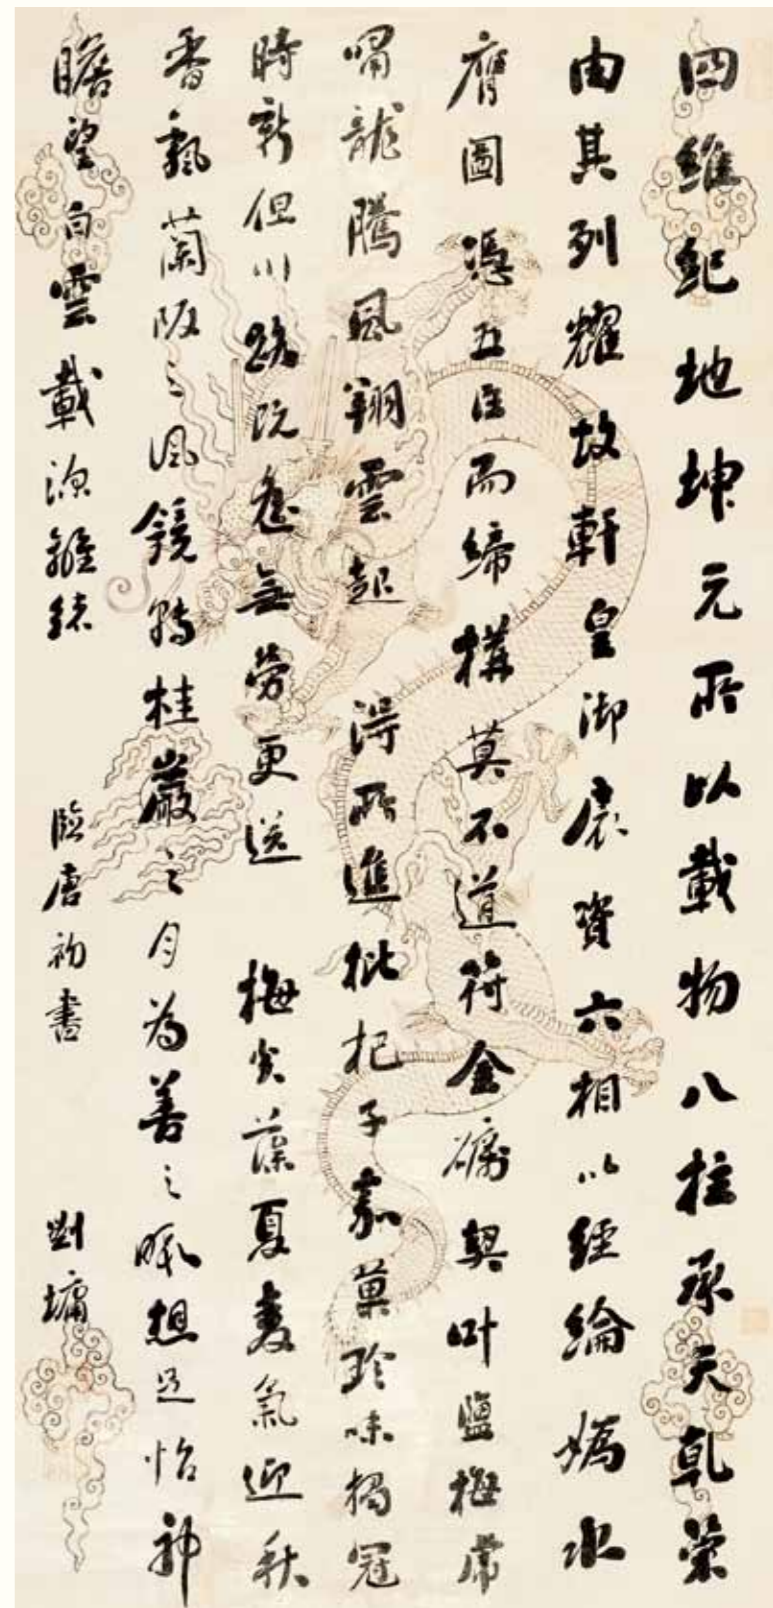 四維紀地坤元所以載物八柱承天乾策
由其列耀故軒皇御扆資六相以經綸媯水
膺圖憑五臣而締構莫不道符金礪契叶鹽梅虎
嘯龍騰風翔雲起 得所進枇杷子嘉菓珍味獨冠
時新但川路既遙無勞更送 梅炎藻夏麦氣迎秋
香飄蘭阪之風鏡轉桂巖之月為善之暇想足怡神
瞻望白雲載深離緒 臨唐初書 劉墉